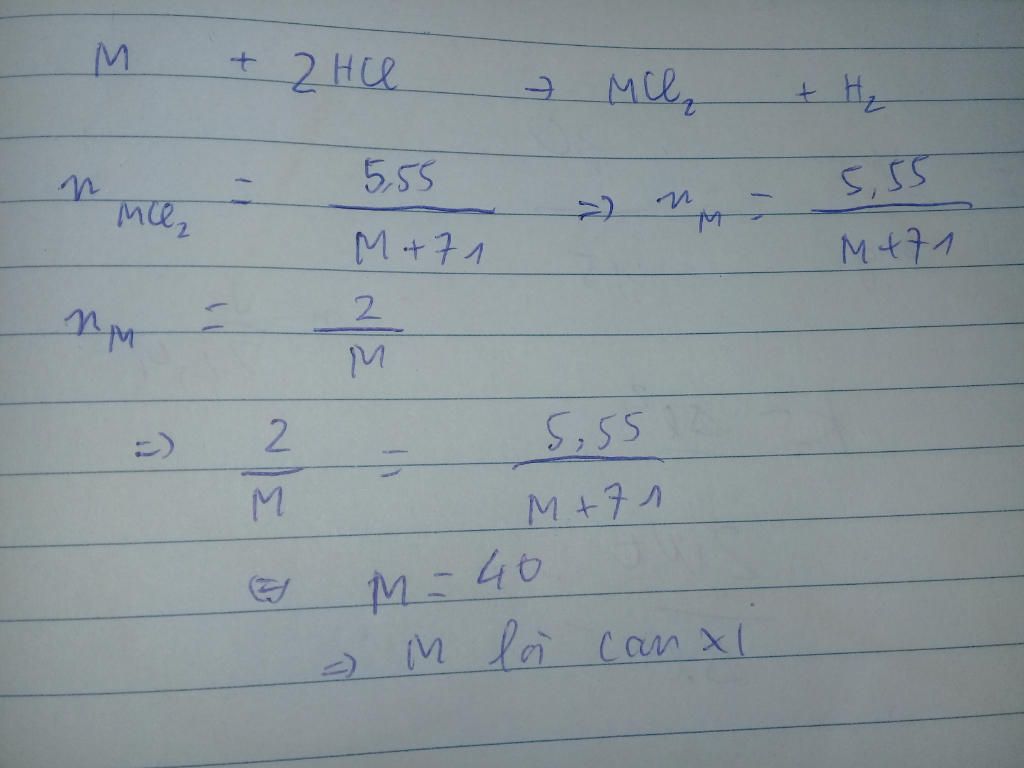 M + 2HCl → MCl₂ + H₂
n_MCl₂ = 5,55 / (M+71) => n_M = 5,55 / (M+71)
n_M = 2 / M
=> 2 / M = 5,55 / (M+71)
<=> M = 40
=> M là canxi